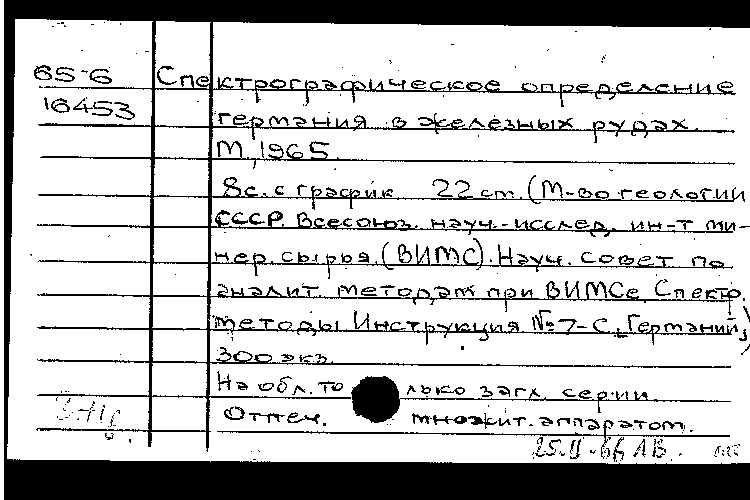 65-6 Спектрографическое определение
16453 германия в железных рудах.
М., 1965.
8с. с график. 22 cm. (М-во геологии
СССР. Всесоюз. науч.-исслед. ин-т ми-
нер. сырья. (ВИМС). Науч. совет по
аналит. методам при ВИМСе. Спектр.
методы. Инструкция № 7-С, Германий)
300 экз.
На обл. только загл. серии.
Отпеч. множит. аппаратом.
25.II-66 ЛВ.